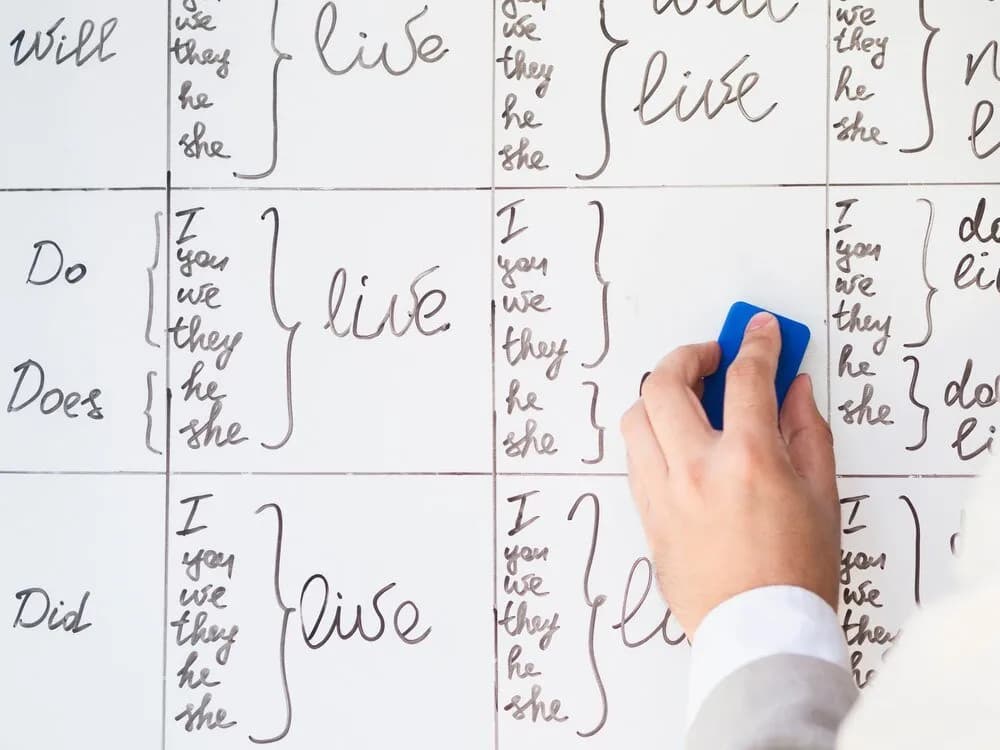 Will
we
they
he
she
live
we
they
he
she
will
live
we
they
he
she
Do
Does
I
you
we
they
he
she
live
I
you
we
they
he
she
I
you
we
they
he
she
do
li
do
li
Did
I
you
we
they
he
she
live
I
you
we
they
he
she
li
I
you
we
they
he